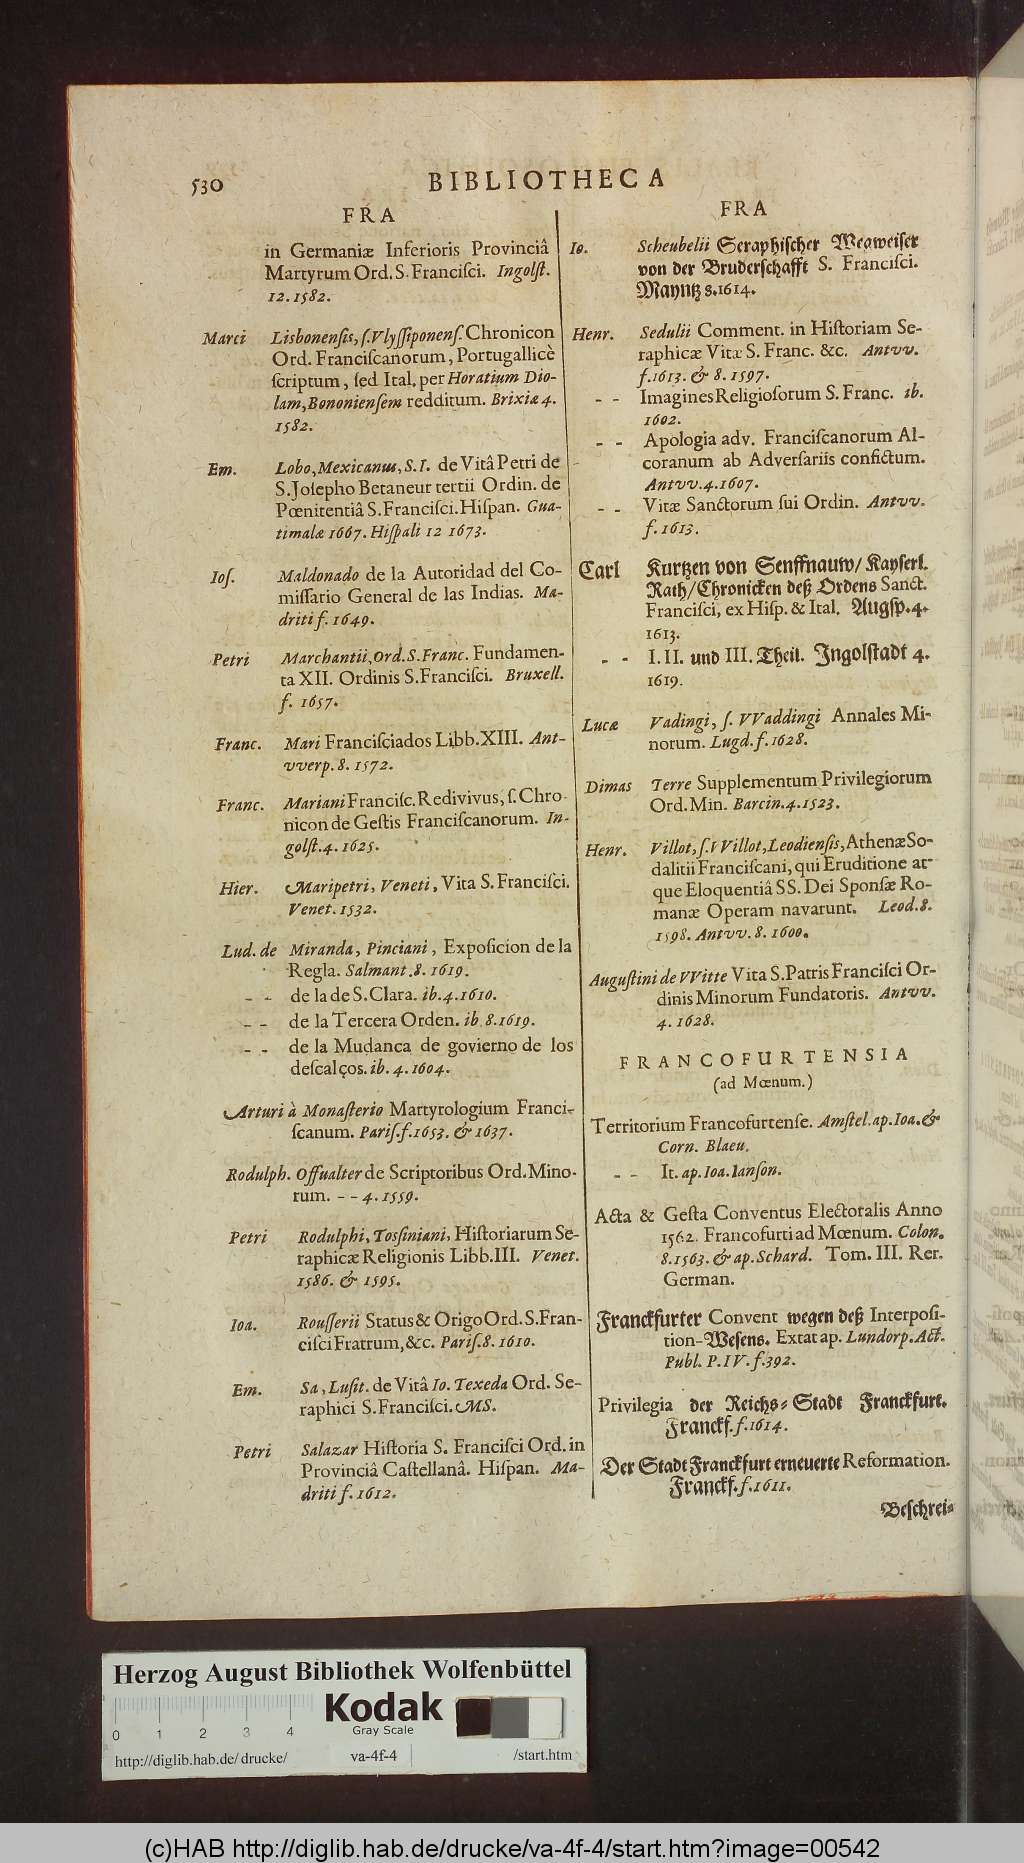 530
BIBLIOTHECA
FRA
in Germaniæ Inferioris Provinciâ
Martyrum Ord. S. Franciſci. Ingolſt.
12. 1582.
Marci Lisbonenſis, ſ. Vlyſſiponenſ. Chronicon
Ord. Franciſcanorum, Portugallicè
ſcriptum, ſed Ital. per Horatium Dio-
lam, Bononienſem redditum. Brixiæ 4.
1582.
Em. Lobo, Mexicanus, S. I. de Vitâ Petri de
S. Joſepho Betaneur tertii Ordin. de
Pœnitentiâ S. Franciſci. Hiſpan. Gua-
timalæ 1667. Hiſpali 12 1673.
Ioſ. Maldonado de la Autoridad del Co-
miſſario General de las Indias. Ma-
driti f. 1649.
Petri Marchantii, Ord. S. Franc. Fundamen-
ta XII. Ordinis S. Franciſci. Bruxell.
f. 1657.
Franc. Mari Franciſciados Libb. XIII. Ant-
vverp. 8. 1572.
Franc. Mariani Franciſc. Redivivus, ſ. Chro-
nicon de Geſtis Franciſcanorum. In-
golſt. 4. 1625.
Hier. Maripetri, Veneti, Vita S. Franciſci.
Venet. 1532.
Lud. de Miranda, Pinciani, Expoſicion de la
Regla. Salmant. 8. 1619.
- - de la de S. Clara. ib. 4. 1610.
- - de la Tercera Orden. ib 8. 1619.
- - de la Mudanca de govierno de los
deſcalços. ib. 4. 1604.
Arturi à Monaſterio Martyrologium Franci-
ſcanum. Pariſ. f. 1653. & 1637.
Rodulph. Offualter de Scriptoribus Ord. Mino-
rum. - - 4. 1559.
Petri Rodulphi, Toſsiniani, Hiſtoriarum Se-
raphicæ Religionis Libb. III. Venet.
1586. & 1595.
Ioa. Rouſſerii Status & Origo Ord. S. Fran-
ciſci Fratrum, &c. Pariſ. 8. 1610.
Em. Sa, Luſit. de Vitâ Io. Texeda Ord. Se-
raphici S. Franciſci. MS.
Petri Salazar Hiſtoria S. Franciſci Ord. in
Provinciâ Caſtellanâ. Hiſpan. Ma-
driti f. 1612.
FRA
Io. Scheubelii Seraphiſcher Wegweiſer
von der Bruderſchafft S. Franciſci.
Mayntz 8. 1614.
Henr. Sedulii Comment. in Hiſtoriam Se-
raphicæ Vitæ S. Franc. &c. Antvv.
f. 1613. & 8. 1597.
- - Imagines Religioſorum S. Franc. ib.
1602.
- - Apologia adv. Franciſcanorum Al-
coranum ab Adverſariis confictum.
Antvv. 4. 1607.
- - Vitæ Sanctorum ſui Ordin. Antvv.
f. 1613.
Carl Kurtzen von Senffnauw/ Kayſerl.
Rath/ Chronicken deß Ordens Sanct.
Franciſci, ex Hiſp. & Ital. Augſp. 4.
1613.
- - I. II. und III. Theil. Ingolſtadt 4.
1619.
Lucæ Vadingi, ſ. VVaddingi Annales Mi-
norum. Lugd. f. 1628.
Dimas Terre Supplementum Privilegiorum
Ord. Min. Barcin. 4. 1523.
Henr. Villot, ſ. VVillot, Leodienſis, Athenæ So-
dalitii Franciſcani, qui Eruditione at-
que Eloquentiâ SS. Dei Sponſæ Ro-
manæ Operam navarunt. Leod. 8.
1598. Antvv. 8. 1600.
Auguſtini de VVitte Vita S. Patris Franciſci Or-
dinis Minorum Fundatoris. Antvv.
4. 1628.
FRANCOFURTENSIA
(ad Mœnum.)
Territorium Francofurtenſe. Amſtel. ap. Ioa. &
Corn. Blaeu.
- - It. ap. Ioa. Ianſon.
Acta & Geſta Conventus Electoralis Anno
1562. Francofurti ad Mœnum. Colon.
8. 1563. & ap. Schard. Tom. III. Rer.
German.
Franckfurter Convent wegen deß Interpoſi-
tion-Weſens. Extat ap. Lundorp. Act.
Publ. P. IV. f. 392.
Privilegia der Reichs-Stadt Franckfurt.
Franckf. f. 1614.
Der Stadt Franckfurt erneuerte Reformation.
Franckf. f. 1611.
Beſchrei-
Herzog August Bibliothek Wolfenbüttel
Kodak
Gray Scale
0 1 2 3 4
http://diglib.hab.de/ drucke/ va-4f-4 /start.htm
(c)HAB http://diglib.hab.de/drucke/va-4f-4/start.htm?image=00542